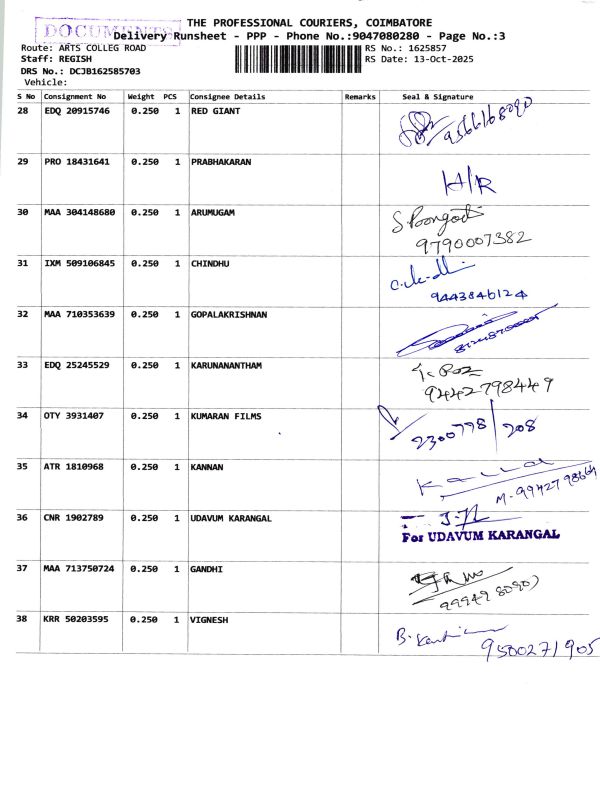 THE PROFESSIONAL COURIERS, COIMBATORE
DOCUMENT
Delivery Runsheet - PPP - Phone No.:9047080280 - Page No.:3
Route: ARTS COLLEG ROAD RS No.: 1625857
Staff: REGISH RS Date: 13-Oct-2025
DRS No.: DCJB162585703
Vehicle:
S No Consignment No Weight PCS Consignee Details Remarks Seal & Signature
28 EDQ 20915746 0.250 1 RED GIANT 9566168090
29 PRO 18431641 0.250 1 PRABHAKARAN H/R
30 MAA 304148680 0.250 1 ARUMUGAM
9790007382
31 IXM 509106845 0.250 1 CHINDHU
9443846124
32 MAA 710353639 0.250 1 GOPALAKRISHNAN
33 EDQ 25245529 0.250 1 KARUNANANTHAM
9442798449
34 OTY 3931407 0.250 1 KUMARAN FILMS 2300778 / 208
35 ATR 1810968 0.250 1 KANNAN
36 CNR 1902789 0.250 1 UDAVUM KARANGAL
For UDAVUM KARANGAL
37 MAA 713750724 0.250 1 GANDHI
38 KRR 50203595 0.250 1 VIGNESH
9500271905